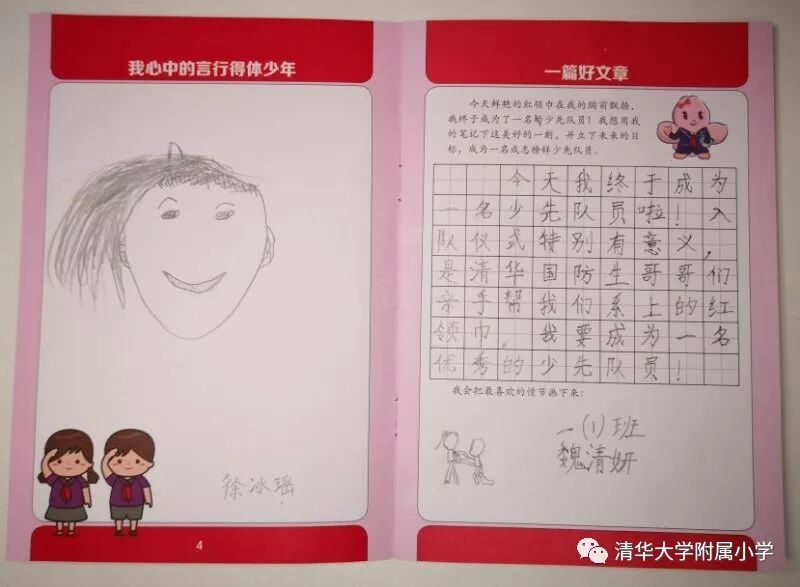 我心中的言行得体少年
徐冰瑶
4
一篇好文章
今天鲜艳的红领巾在我的胸前飘扬，
我终于成为了一名的少先队员！我想用我
的笔记下这美好的一刻，并立下未来的目
标，成为一名成志榜样少先队员。
今天我终于成为
一名少先队员啦！入
队仪式特别有意义，
是清华国防生哥哥们
亲手帮我们系上的红
领巾。我要成为一名
优秀的少先队员！
我会把最喜欢的情节画下来：
一(1)班
魏清妍
清华大学附属小学